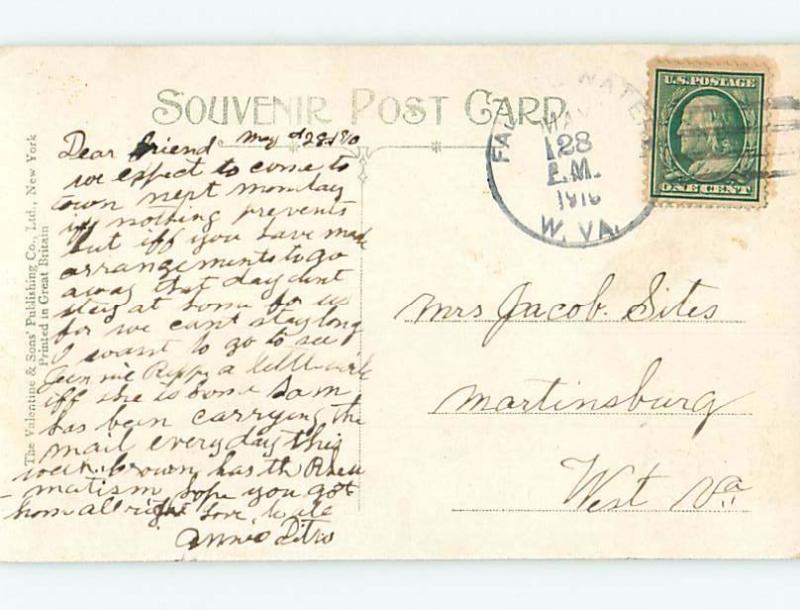 SOUVENIR POST CARD
The Valentine & Sons' Publishing Co., Ltd., New York
Printed in Great Britain
U.S. POSTAGE
ONE CENT
MAY
28
P.M.
1910
W. VA.
Dear friend May
we expect to come to
town next monday
if nothing prevents
but iff you have made
arrangements to go
away that day dont
stay at home for us
for we cant stay long
I want to go to see
Jennie a little while
iff she is home Sam
has been carrying the
mail every day this
week. brown has th Rheu
matism hope you got
home all right love to all
annie
Mrs Jacob. Sites
Martinsburg
West Va